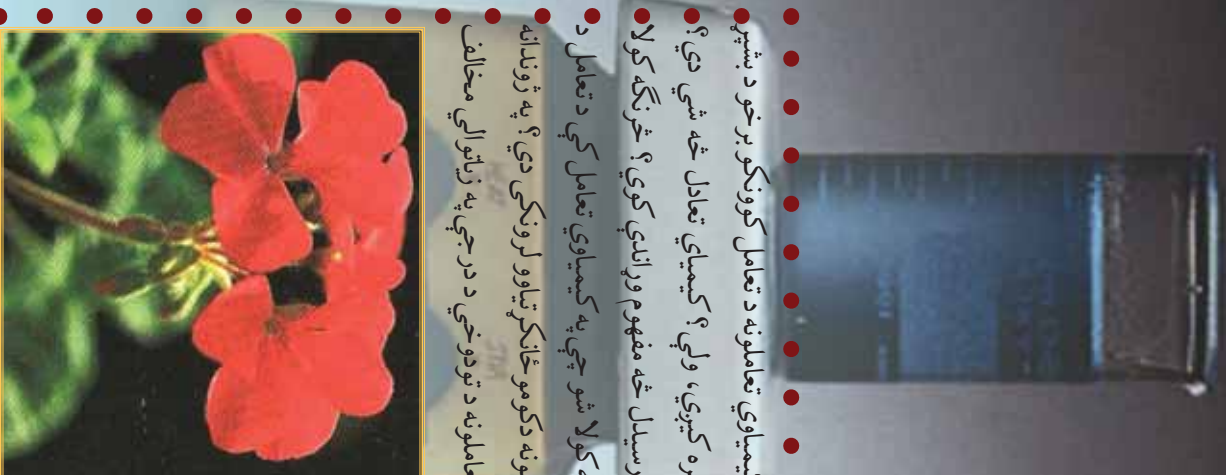 تعاملونه د تعامل کوونکو برخو د بشپړ
کیږي، ولې؟ کیمیاي تعادل څه شی دی؟
رسیدل څه مفهوم وړاندي کوي؟ څرنګه کولا
کولا شو چې په کیمیاوي تعامل کې د تعامل د
دکومو ځانګړتیاوو لرونکي دي؟ په ژوندانه
د تودوخې د درجې په زیاتوالي مخالف